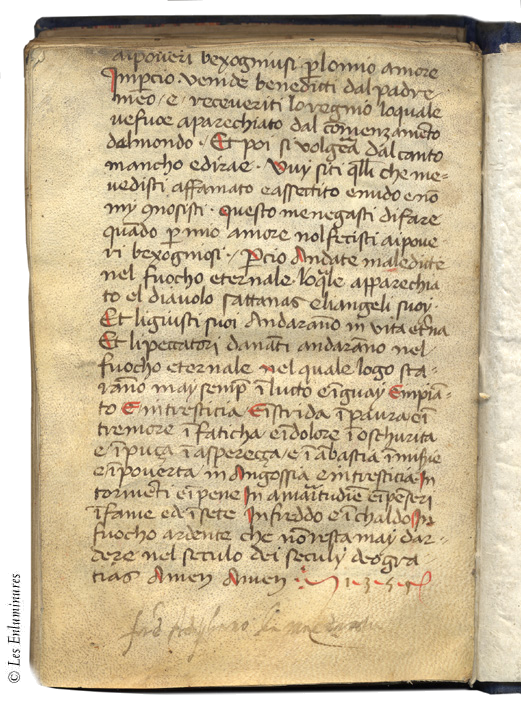 aipoveri bexogniusi plomio amore
Imperciо venide beneditti dal padre
mieo / e receveriti lo regnio loquale
ve fuoe aparechiato dal comenzameto
dal mondo · Et poi si volgera dal canto
mancho e dirae · Vuy siti qlli che me
vedisti affamato e assetito e nudo e no
my gnosisti · Questo me negasti di fare
quado p mio amore nol fecisti ai pove
ri bexognosi · / pcio Andate maledicte
nel fuocho eternale · loqle apparechia
to el diavolo sattanas e li angeli suoy ·
Et li giusti suoi Andarano in vita etna
Et li peccatori danati andarano nel
fuocho eternale nel quale logo sta
rano may semp i lucto e i guay E in pia
to E in tresticia E i strida i paura e i
tremore i faticha e i dolore i oschurita
e i puza i asperecca / e i abastia i
e i poverta in Angossia e in tresticia In
tormeti e i pene In amaritudie e i peseri
i fame ede i sete In freddo e i chaldo In
fuocho ardente che no resta may dar
dere nel seculo dei seculy deo gra
tias Amen Amen
© Les Enluminures